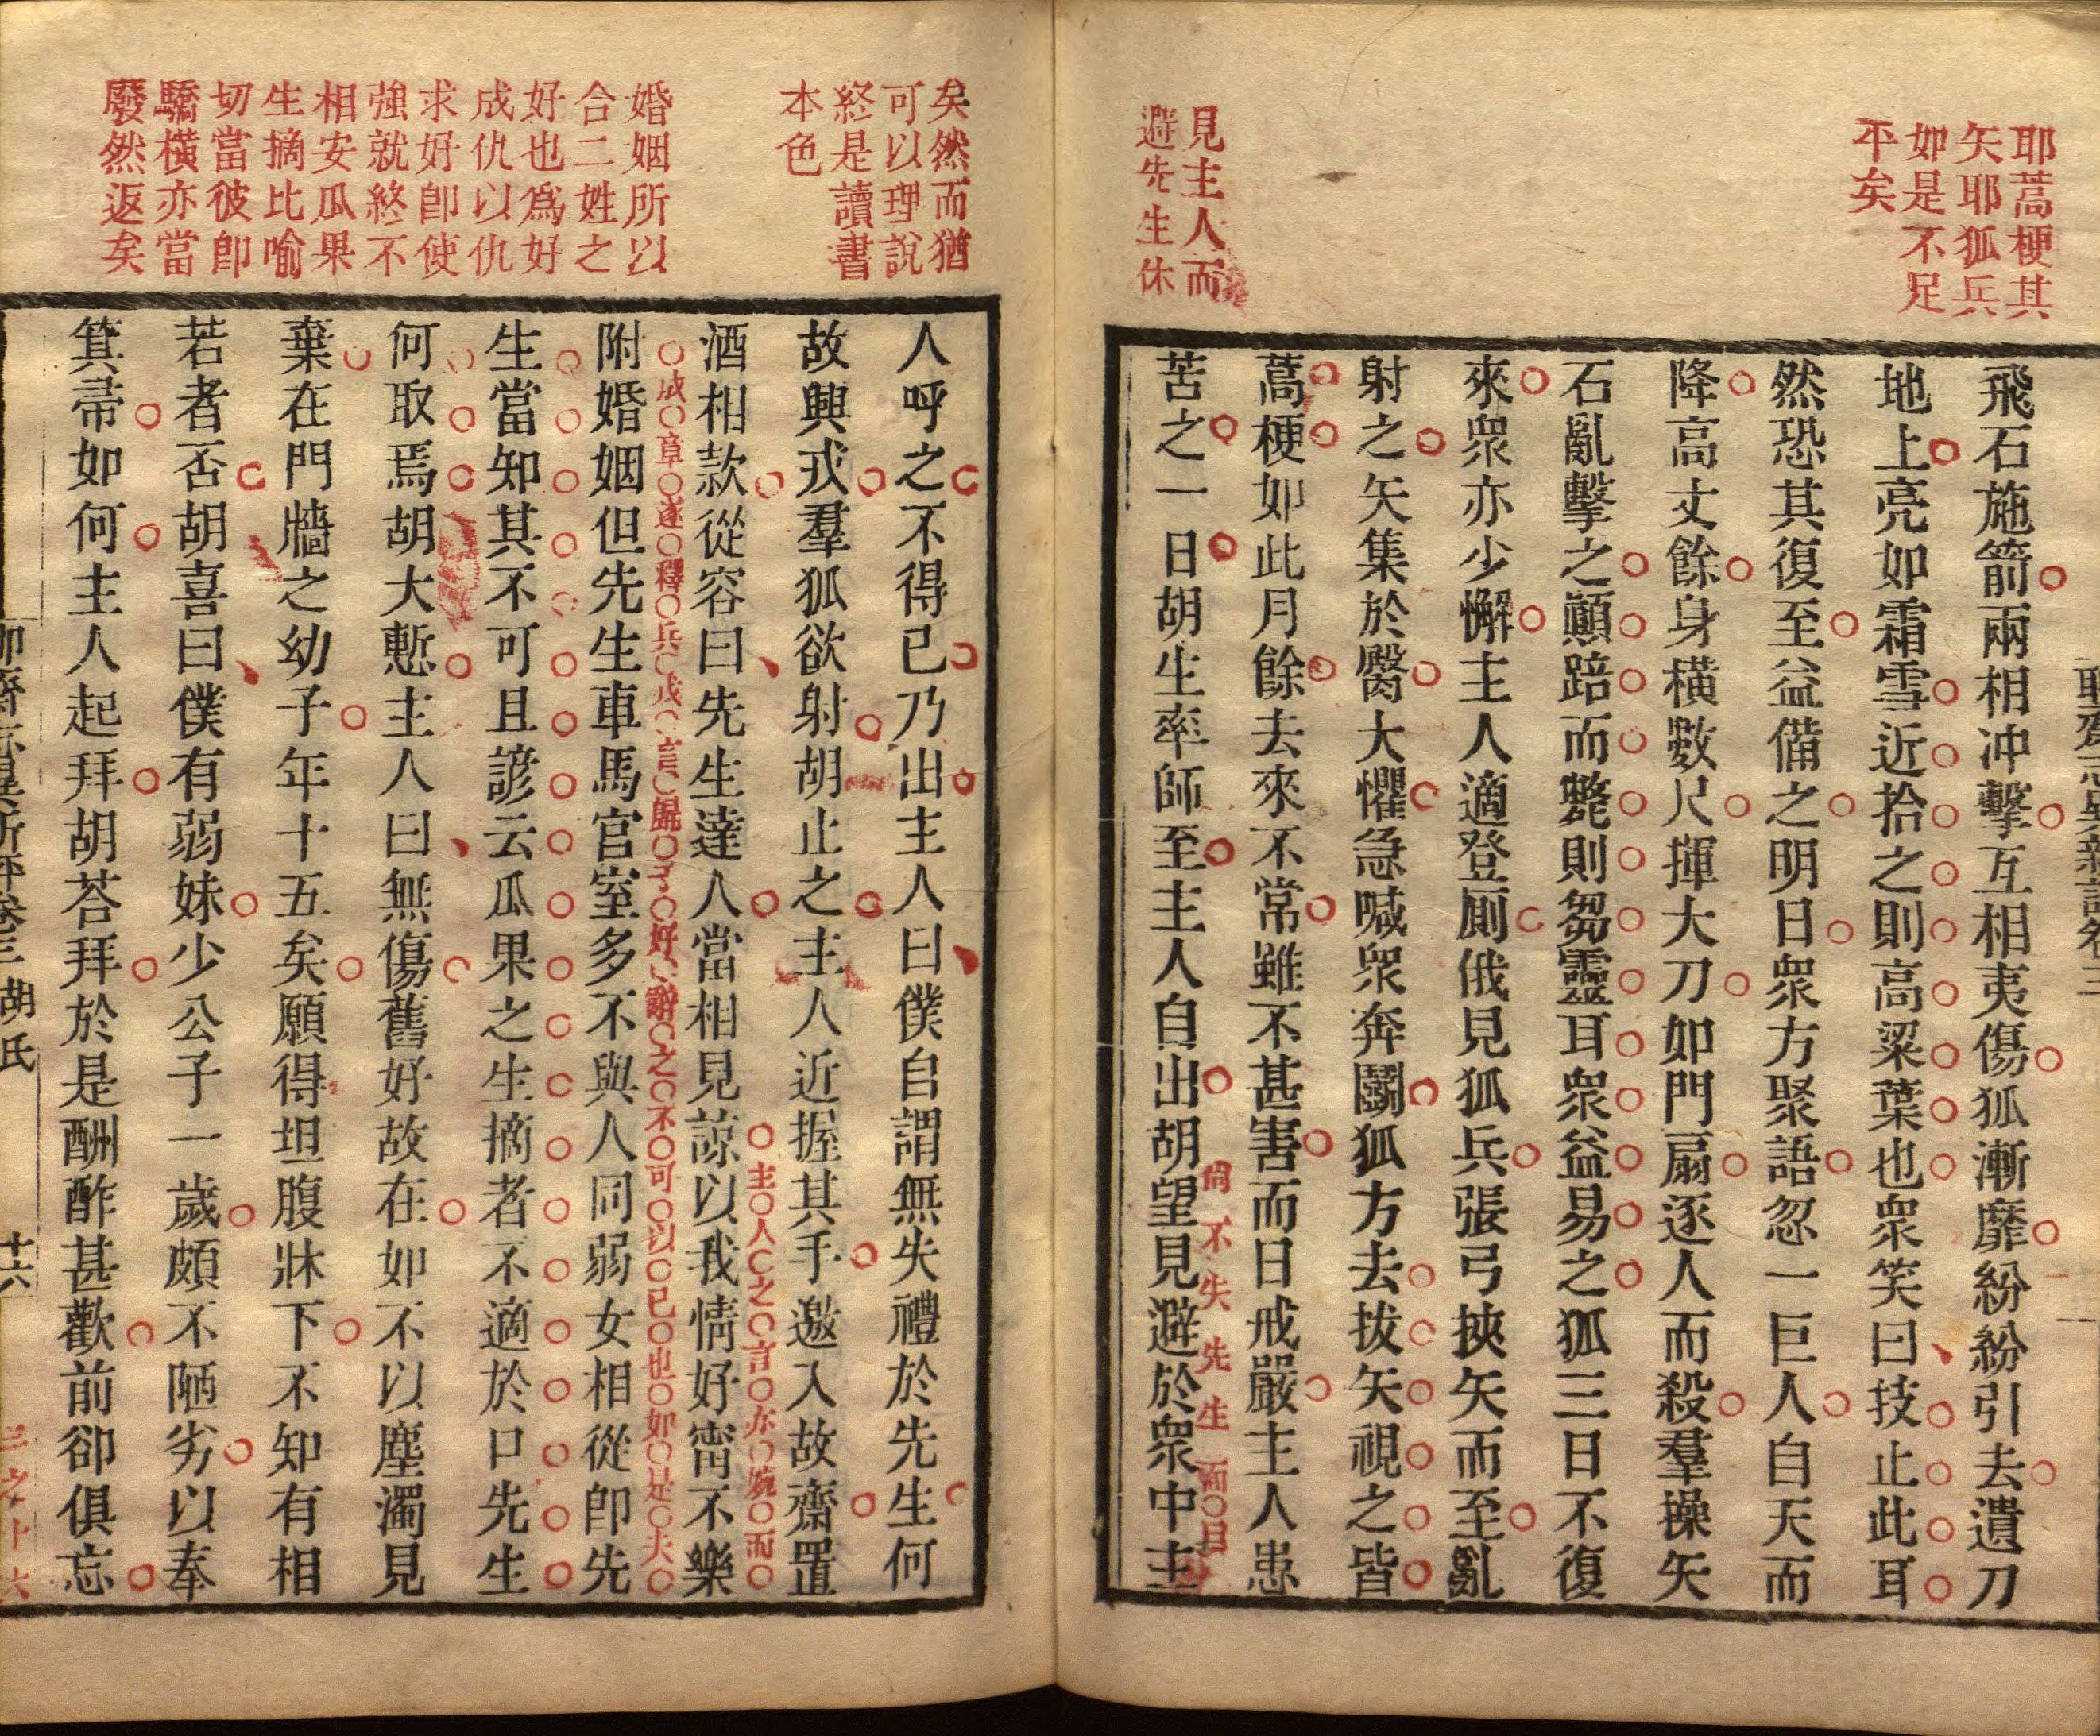 耶蒿梗其
矢耶狐兵
如是不足
平矣
見主人而
避先生休
飛石施箭兩相冲擊互相夷傷狐漸靡紛紛引去遺刀
地上亮如霜雪近拾之則高粱葉也衆笑曰技止此耳
然恐其復至益備之明日衆方聚語忽一巨人自天而
降高丈餘身橫數尺揮大刀如門扇逐人而殺羣操矢
石亂擊之顚踣而斃則芻靈耳衆益易之狐三日不復
來衆亦少懈主人適登厠俄見狐兵張弓挾矢而至亂
射之矢集於臀大懼急喊衆奔鬭狐方去拔矢視之皆
蒿梗如此月餘去來不常雖不甚害而日戒嚴主人患
尙不失先生面目
苦之一日胡生率師至主人自出胡望見避於衆中主
矣然而猶
可以理說
終是讀書
本色
婚姻所以
合二姓之
好也爲好
成仇以仇
求好卽使
強就終不
相安瓜果
生摘比喻
切當彼卽
驕橫亦當
廢然返矣
人呼之不得已乃出主人曰僕自謂無失禮於先生何
故興戎羣狐欲射胡止之主人近握其手邀入故齋置
主人之言亦婉而
酒相款從容曰先生達人當相見諒以我情好甯不樂
成章遂釋兵戎言歸于好謝之不可以已也如是夫
附婚姻但先生車馬宮室多不與人同弱女相從卽先
生當知其不可且諺云瓜果之生摘者不適於口先生
何取焉胡大慙主人曰無傷舊好故在如不以塵濁見
棄在門牆之幼子年十五矣願得坦腹牀下不知有相
若者否胡喜曰僕有弱妹少公子一歲頗不陋劣以奉
箕帚如何主人起拜胡荅拜於是酬酢甚歡前卻俱忘
聊齋志異新評卷三 胡氏 十六
三之十六